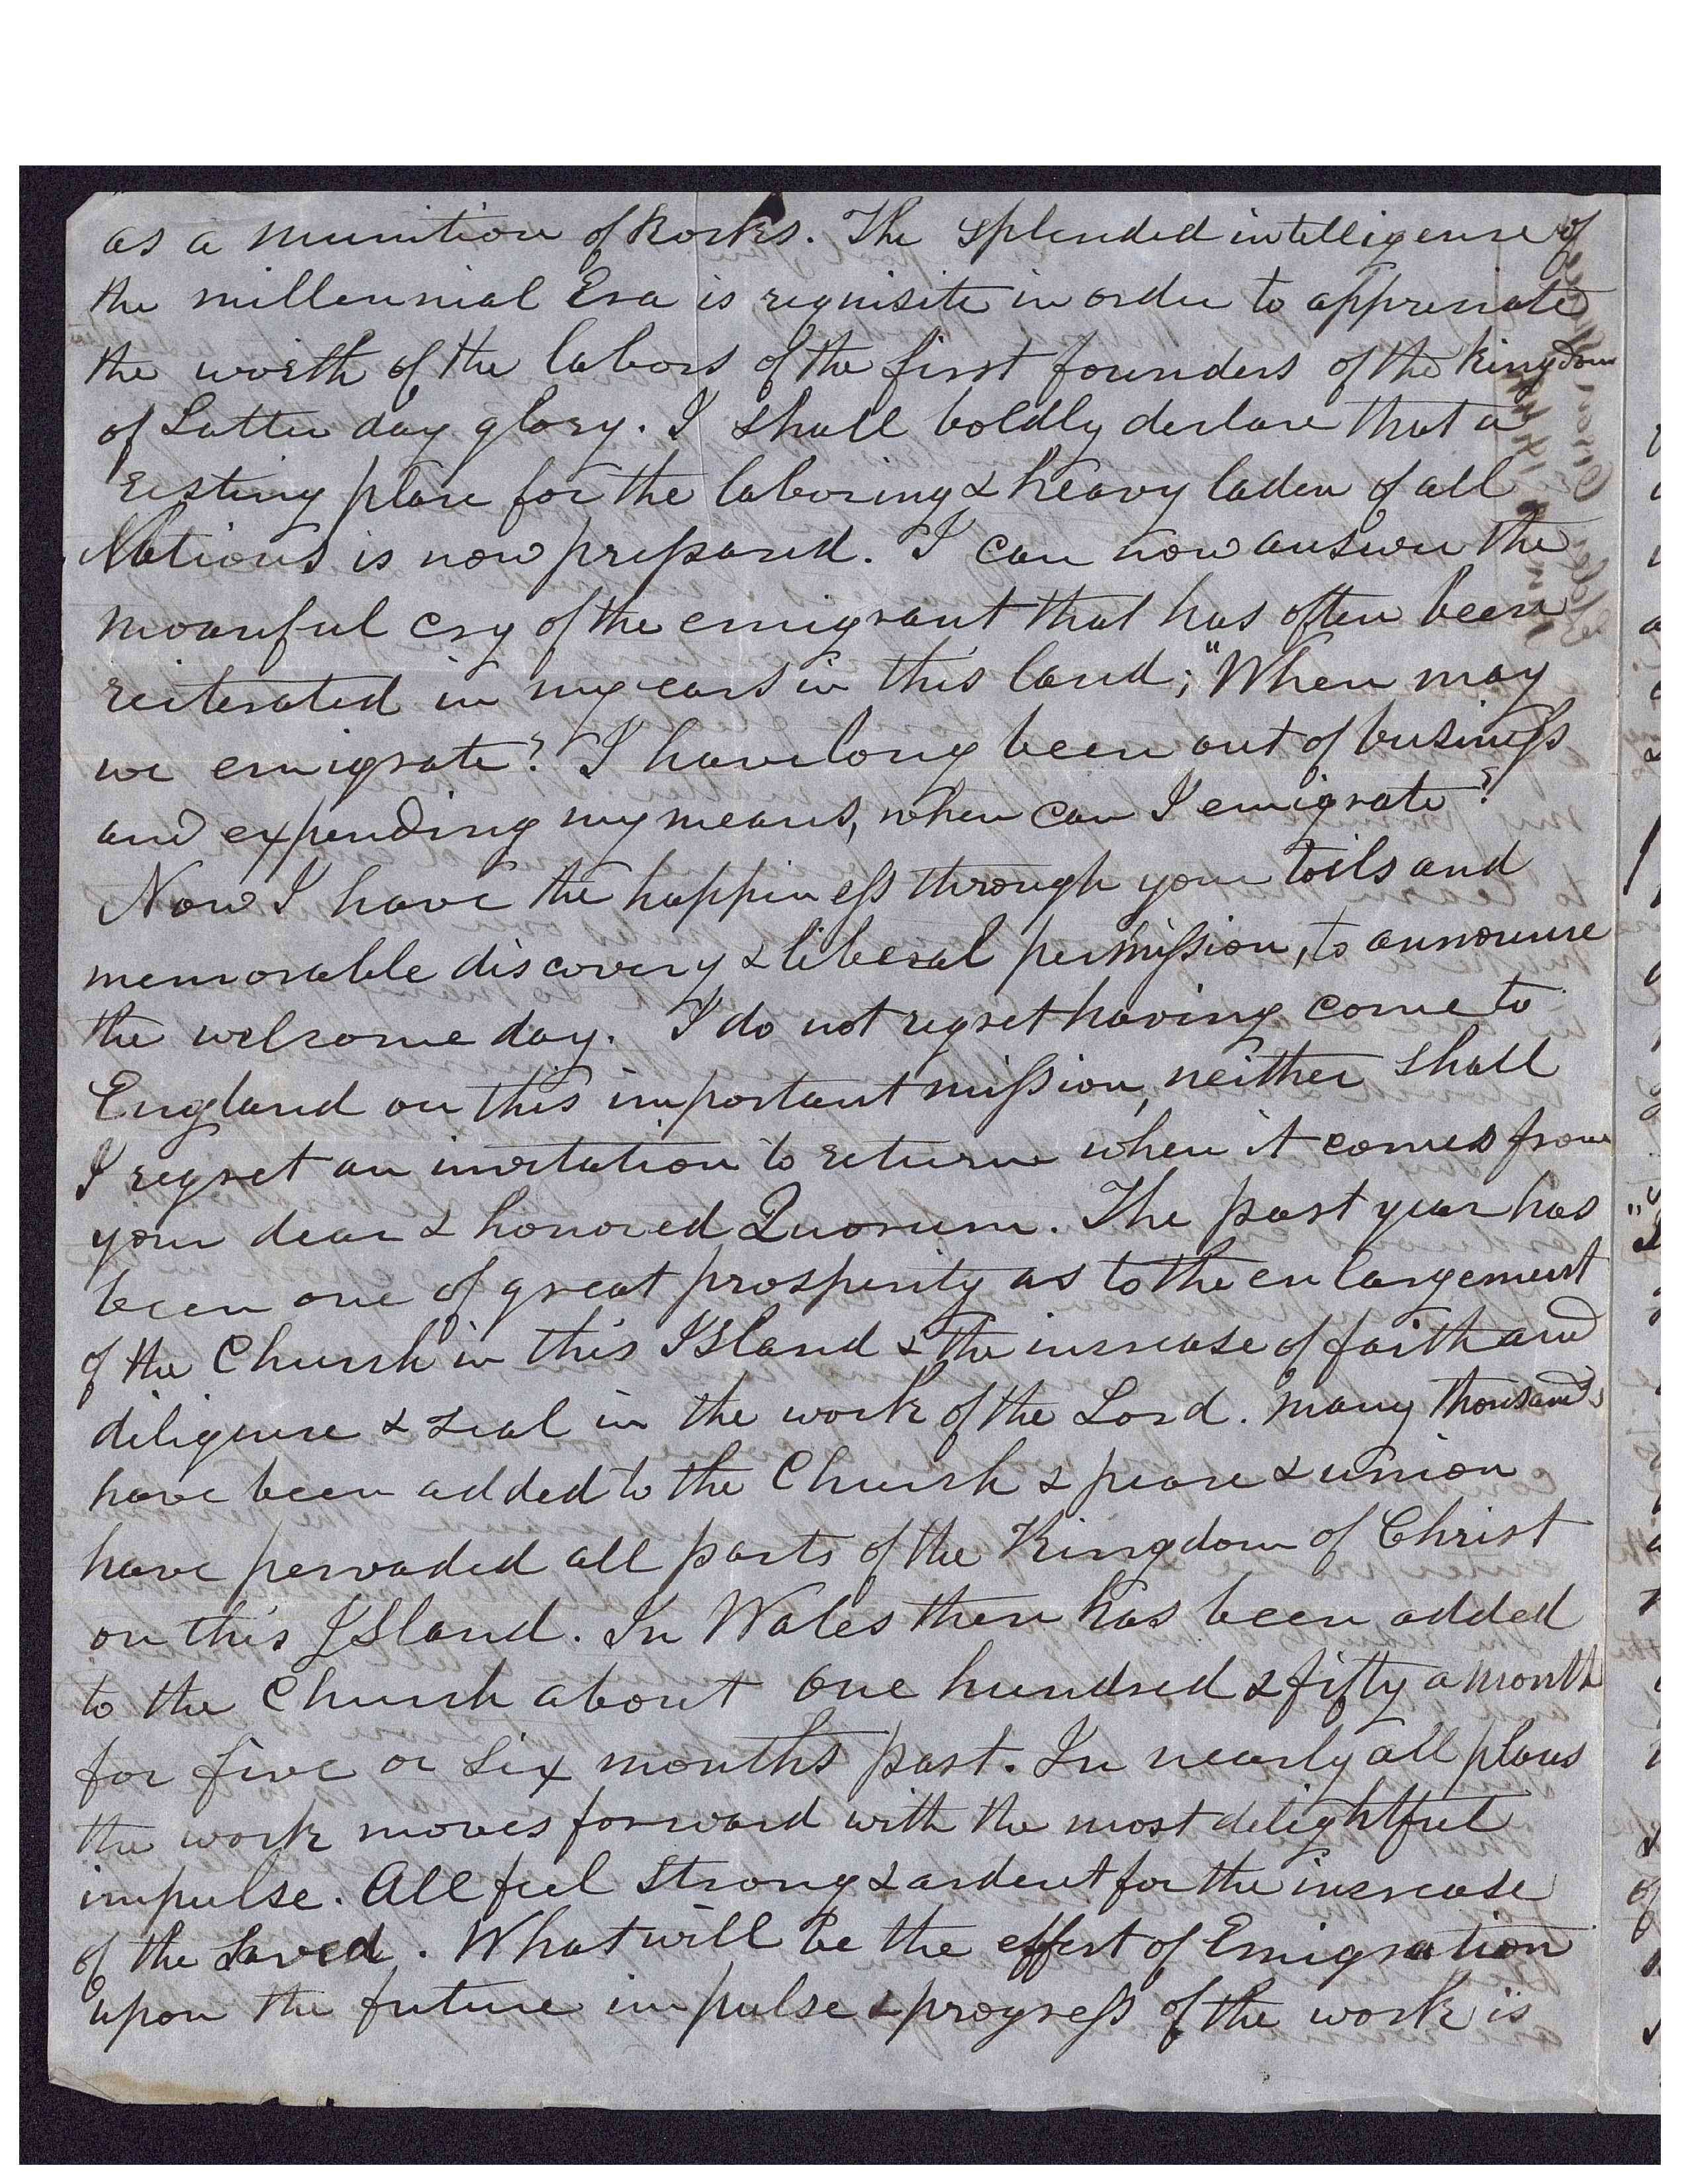 as a munition of Rocks. The splended intelligence of
the millennial Era is requisite in order to appreciate
the worth of the labors of the first founders of the Kingdom
of Latter day glory. I shall boldly declare that a
resting place for the laboring & heavy laden of all
Nations is now prepared. I can now answer the
mournful cry of the emigrant that has often been
reiterated in my ears in this land; "When may
we emigrate? I have long been out of business
and expending my means, when can I emigrate?
Now I have the happiness through your toils and
memorable discovery & liberal permission, to announce
the welcome day. I do not regret having come to
England on this important mission, neither shall
I regret an invitation to return when it comes from
your dear & honored Quorum. The past year has
been one of great prosperity as to the enlargement
of the Church in this Island & the increase of faith and
diligence & zeal in the work of the Lord. Many thousands
have been added to the Church & peace & union
have pervaded all parts of the Kingdom of Christ
on this Island. In Wales there has been added
to the Church about one hundred & fifty a month
for five or six months past. In nearly all places
the work moves forward with the most delightful
impulse. All feel strong & ardent for the increase
of the saved. What will be the effect of Emigration
upon the future impulse & progress of the work is